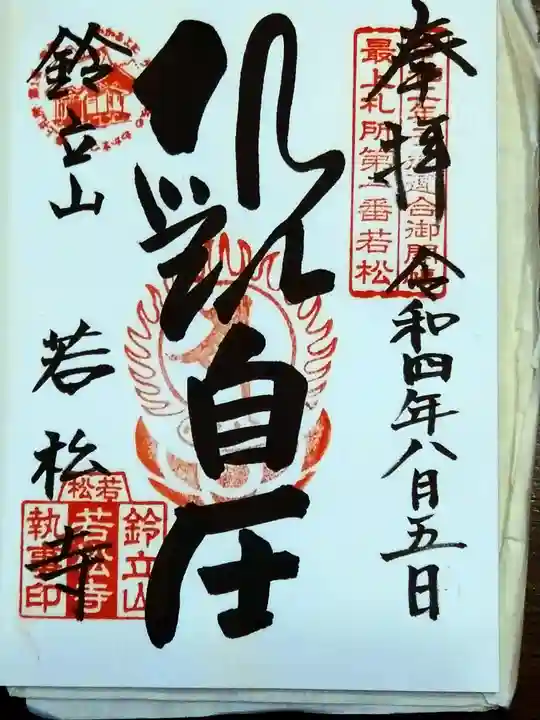 奉拝
令和四年八月五日
最上札所第一番若松
観自在
鈴立山
若松寺
若松
鈴立山
若松寺
執事印